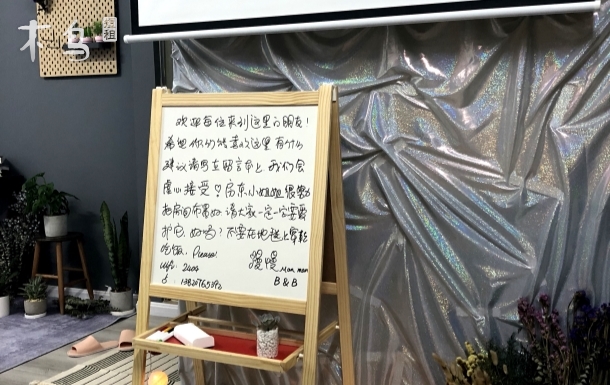 木鸟短租
欢迎每位来到这里的朋友!
希望你们能喜欢这里 有什么
建议请写在留言本上 我们会
虚心接受♡房东小姐姐很努力
把房间布置好 请大家一定一定要爱
护它 好吗? 不要在地毯上
吃饭. Please!
慢慢 Man man
B & B